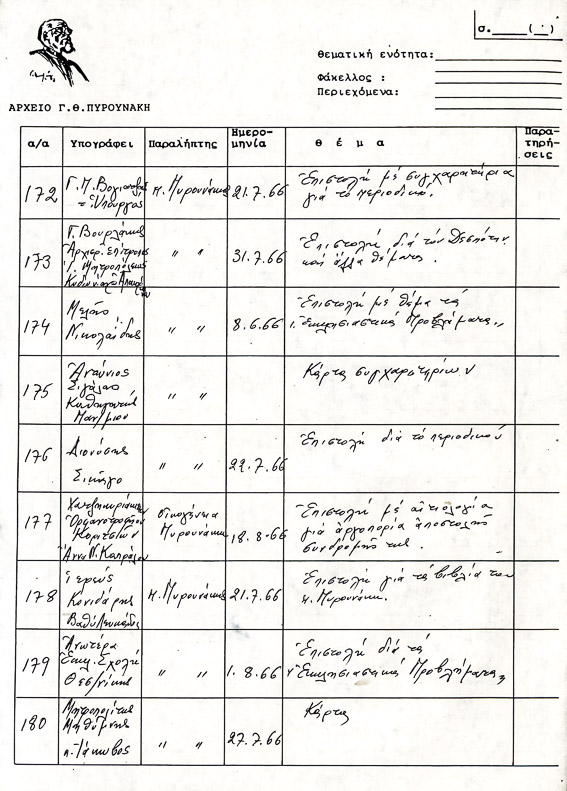 σ.____(__)
θεματική ενότητα:
Φάκελλος :
Περιεχόμενα:
ΑΡΧΕΙΟ Γ.Θ.ΠΥΡΟΥΝΑΚΗ
α/α Υπογράφει Παραλήπτης Ημερο-
μηνία θ έ μ α Παρα-
τηρή-
σεις
172 Γ. Π.
τ. Ὑπουργός
π. Πυρουνάκης 21.7.66
Ἐπιστολή μέ συγχαρητήρια
γιά τό περιοδικό.
173 Γ. Βουρλάκης
Ἀρχιερ. Ἐπίτροπος
Ἱ. Μητροπόλεως
" " 31.7.66
Ἐπιστολή διά τόν Δεσπότην
καί ἄλλα θέματα.
174
Νικολαΐδης
" " 8.6.66
Ἐπιστολή μέ θέμα τά
"Ἐκκλησιαστικά Προβλήματα"
175
Σιγάλας
Καθηγητής
Παν/μίου
" "
Κάρτα συγχαρητηρίων
176 Διονύσης
Σικάγο
" " 22.7.66
Ἐπιστολή διά τό περιοδικό
177
Ὀρφανοτροφείον
Κοριτσιῶν
Ἄννα Ν.
οἰκογένεια
Πυρουνάκη 18.8.66
Ἐπιστολή μέ αἰτιολογία
γιά ἀργοπορία ἀποστολῆς
συνδρομῆς της.
178 ἱερεύς
Κονιδάρης
Βαθύ Λευκάδος
π. Πυρουνάκης 21.7.66
Ἐπιστολή γιά τά βιβλία του
π. Πυρουνάκη.
179 Ἀνωτέρα
Ἐκκλ. Σχολή
Θεσ/νίκης
" " 1.8.66
Ἐπιστολή διά τά
"Ἐκκλησιαστικά Προβλήματα"
180 Μητροπολίτης
Μηθύμνης
π. Ἰάκωβος
" " 27.7.66
Κάρτα